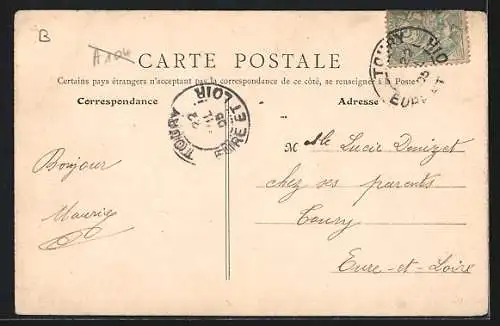 B
A104
CARTE POSTALE
Certains pays étrangers n'acceptant pas la correspondance de ce côté, se renseigner à la Poste
Correspondance
Adresse
TOURY
EURE ET LOIR
TOURY
M elle Lucie Denizet
Bonjour
chez ses parents
Maurice
Toury
Eure-et-Loire